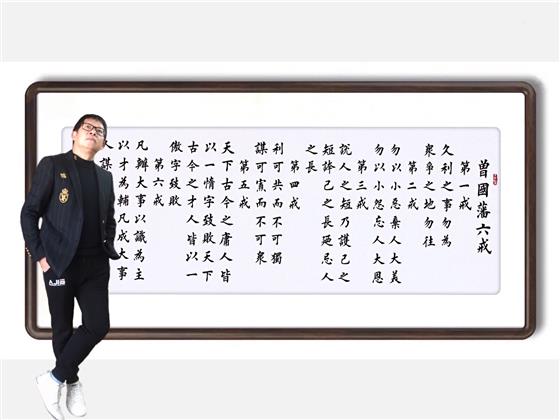 曾國藩六戒
第一戒
久利之事勿為
衆爭之地勿往
第二戒
勿以小惡棄人大美
勿以小怨忘人大恩
第三戒
說人之短乃護己之
短誇己之長廼忌人
之長
第四戒
利可共而不可獨
謀可寡而不可衆
第五戒
天下古今之庸人皆
以一惰字致敗天下
古今之才人皆以一
傲字致敗
第六戒
凡辦大事以識為主
以才為輔凡成大事
謀